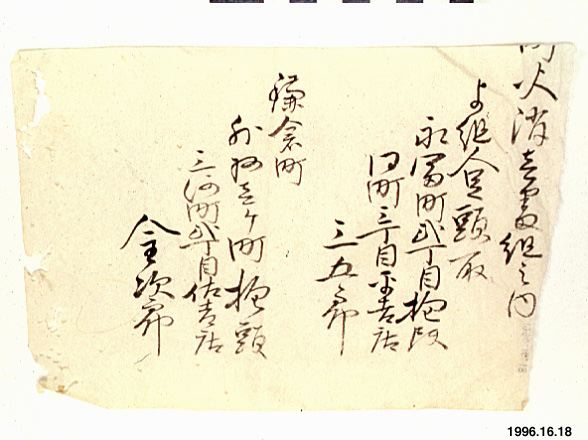 町火消壱番組之内
よ組人足頭取
永冨町弐丁目抱
同町三丁目平吉店
三五郎
鎌倉町
外拾壱ヶ町抱頭
三河町弐丁目佐吉店
金次郎
1996.16.18